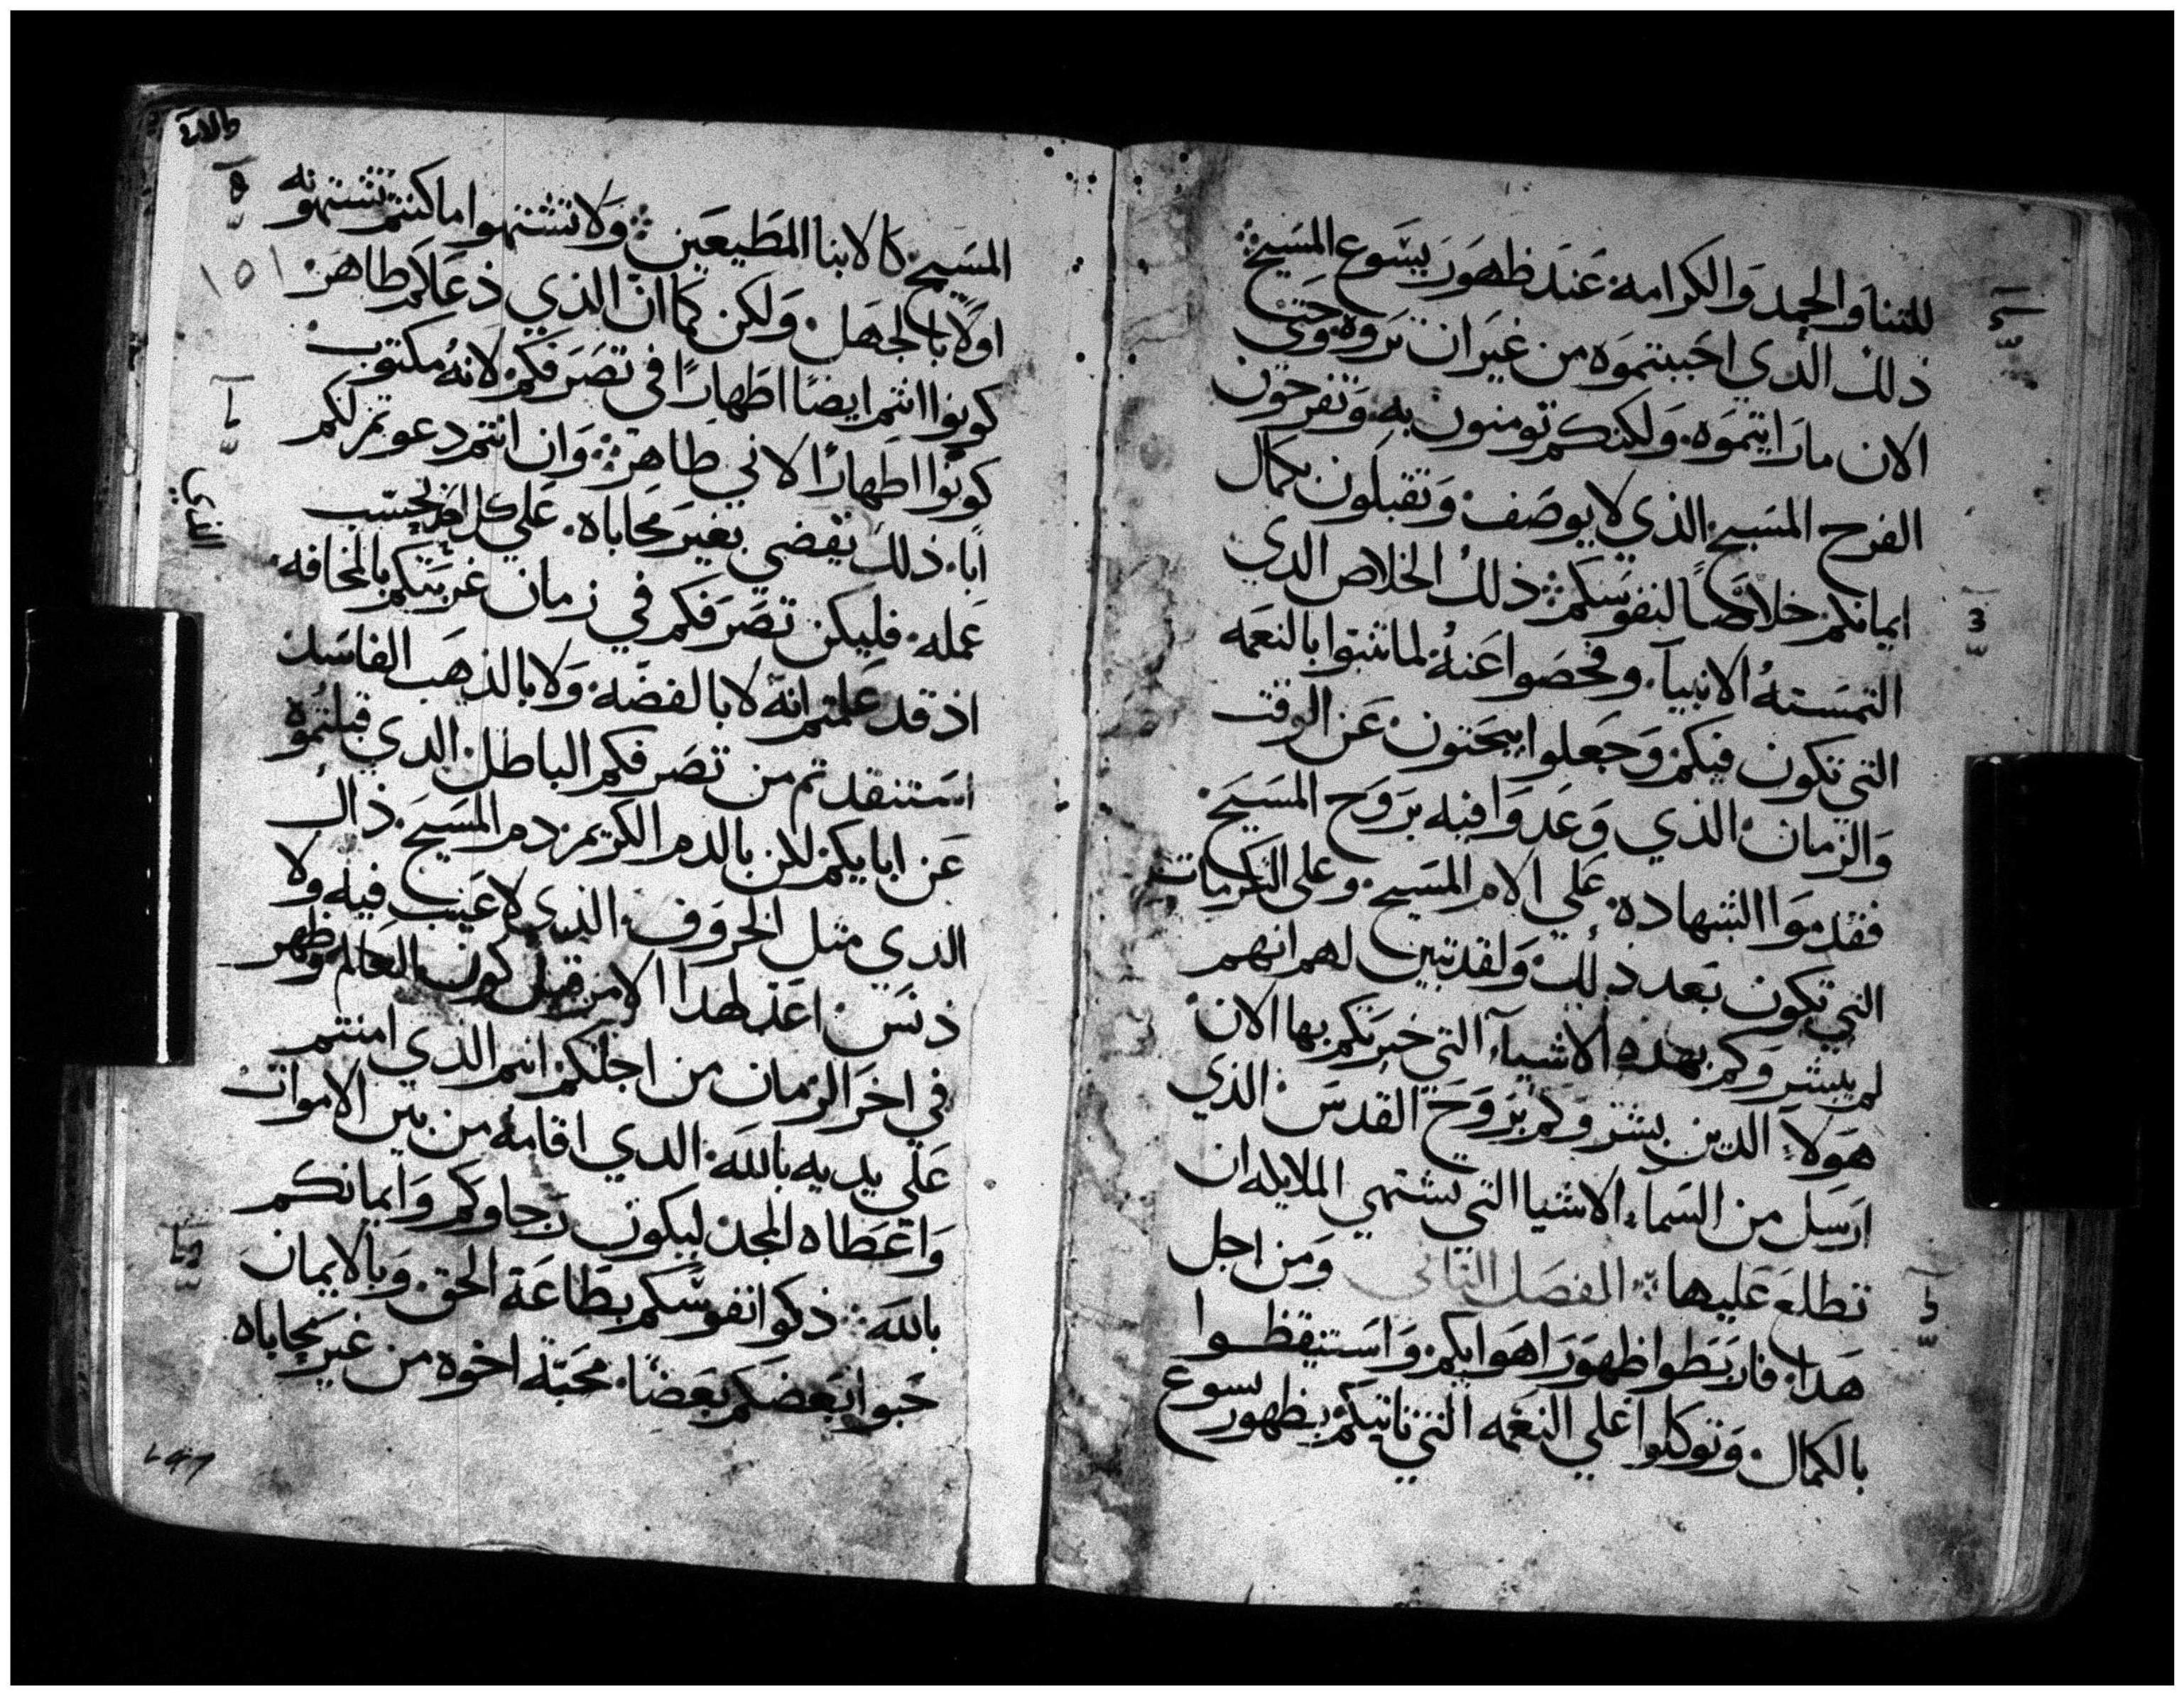 للثنا والحمد والكرامه عند ظهور يسوع المسيح
ذلك الذي احببتموه من غير ان تروه وحتي
الان ما رايتموه ولكنكم تومنون به وتفرحون
الفرح المسيح الذي لا يوصف وتقبلون بكمال
ايمانكم خلاصا لنفوسكم ذلك الخلاص الدي
التمسته الانبيآ وفحصوا عنه لما تنبوا بالنعمه
التي تكون فيكم وجعلوا يبحتون عن الوقت
والزمان الذي وعدوا فيه بروح المسيح
فقدموا الشهاده علي الام المسيح وعلي الكرمات
التي تكون بعد ذلك ولقد تبين لهم انهم
لم يبشروكم بهده الاشيآ التي خبرتكم بها الان
هولآء الدين بشروكم بروح القدس الذي
ارسل من السماء الاشيا التي يشتهي الملايكه ان
تطلع عليها الفصل التاني ومن اجل
هدا فاربطوا ظهور اهوايكم واستيقظوا
بالكمال وتوكلوا علي النعمه التي تاتيكم بظهور يسوع
المسيح كالابنا المطيعين ولا تشتهوا ما كنتم تشتهونه
اولا بالجهل ولكن كما ان الذي دعاكم طاهر
كونوا انتم ايضا اطهارا في تصرفكم لانه مكتوب
كونوا اطهارا لاني طاهر وان انتم دعوتم لكم
ابا ذلك يقضي بغير محاباه علي كل احد بحسب
عمله فليكن تصرفكم في زمان غربتكم بالمخافه
اذ قد علمتم انه لا بالفضه ولا بالذهب الفاسد
استنقدتم من تصرفكم الباطل الدي قبلتموه
عن ابايكم لكن بالدم الكريم دم المسيح ذاك
الدي متل الخروف الذي لا عيب فيه ولا
دنس اعد لهدا الامر قبل كون العالم وظهر
في اخر الزمان من اجلكم انتم الذي امنتم
علي يديه بالله الدي اقامه من بين الاموات
واعطاه المجد ليكون رجاوكم وايمانكم
بالله ذكوا نفوسكم بطاعة الحق وبالايمان
حبوا بعضكم بعضا محبة اخوه من غير محاباه
١٥١